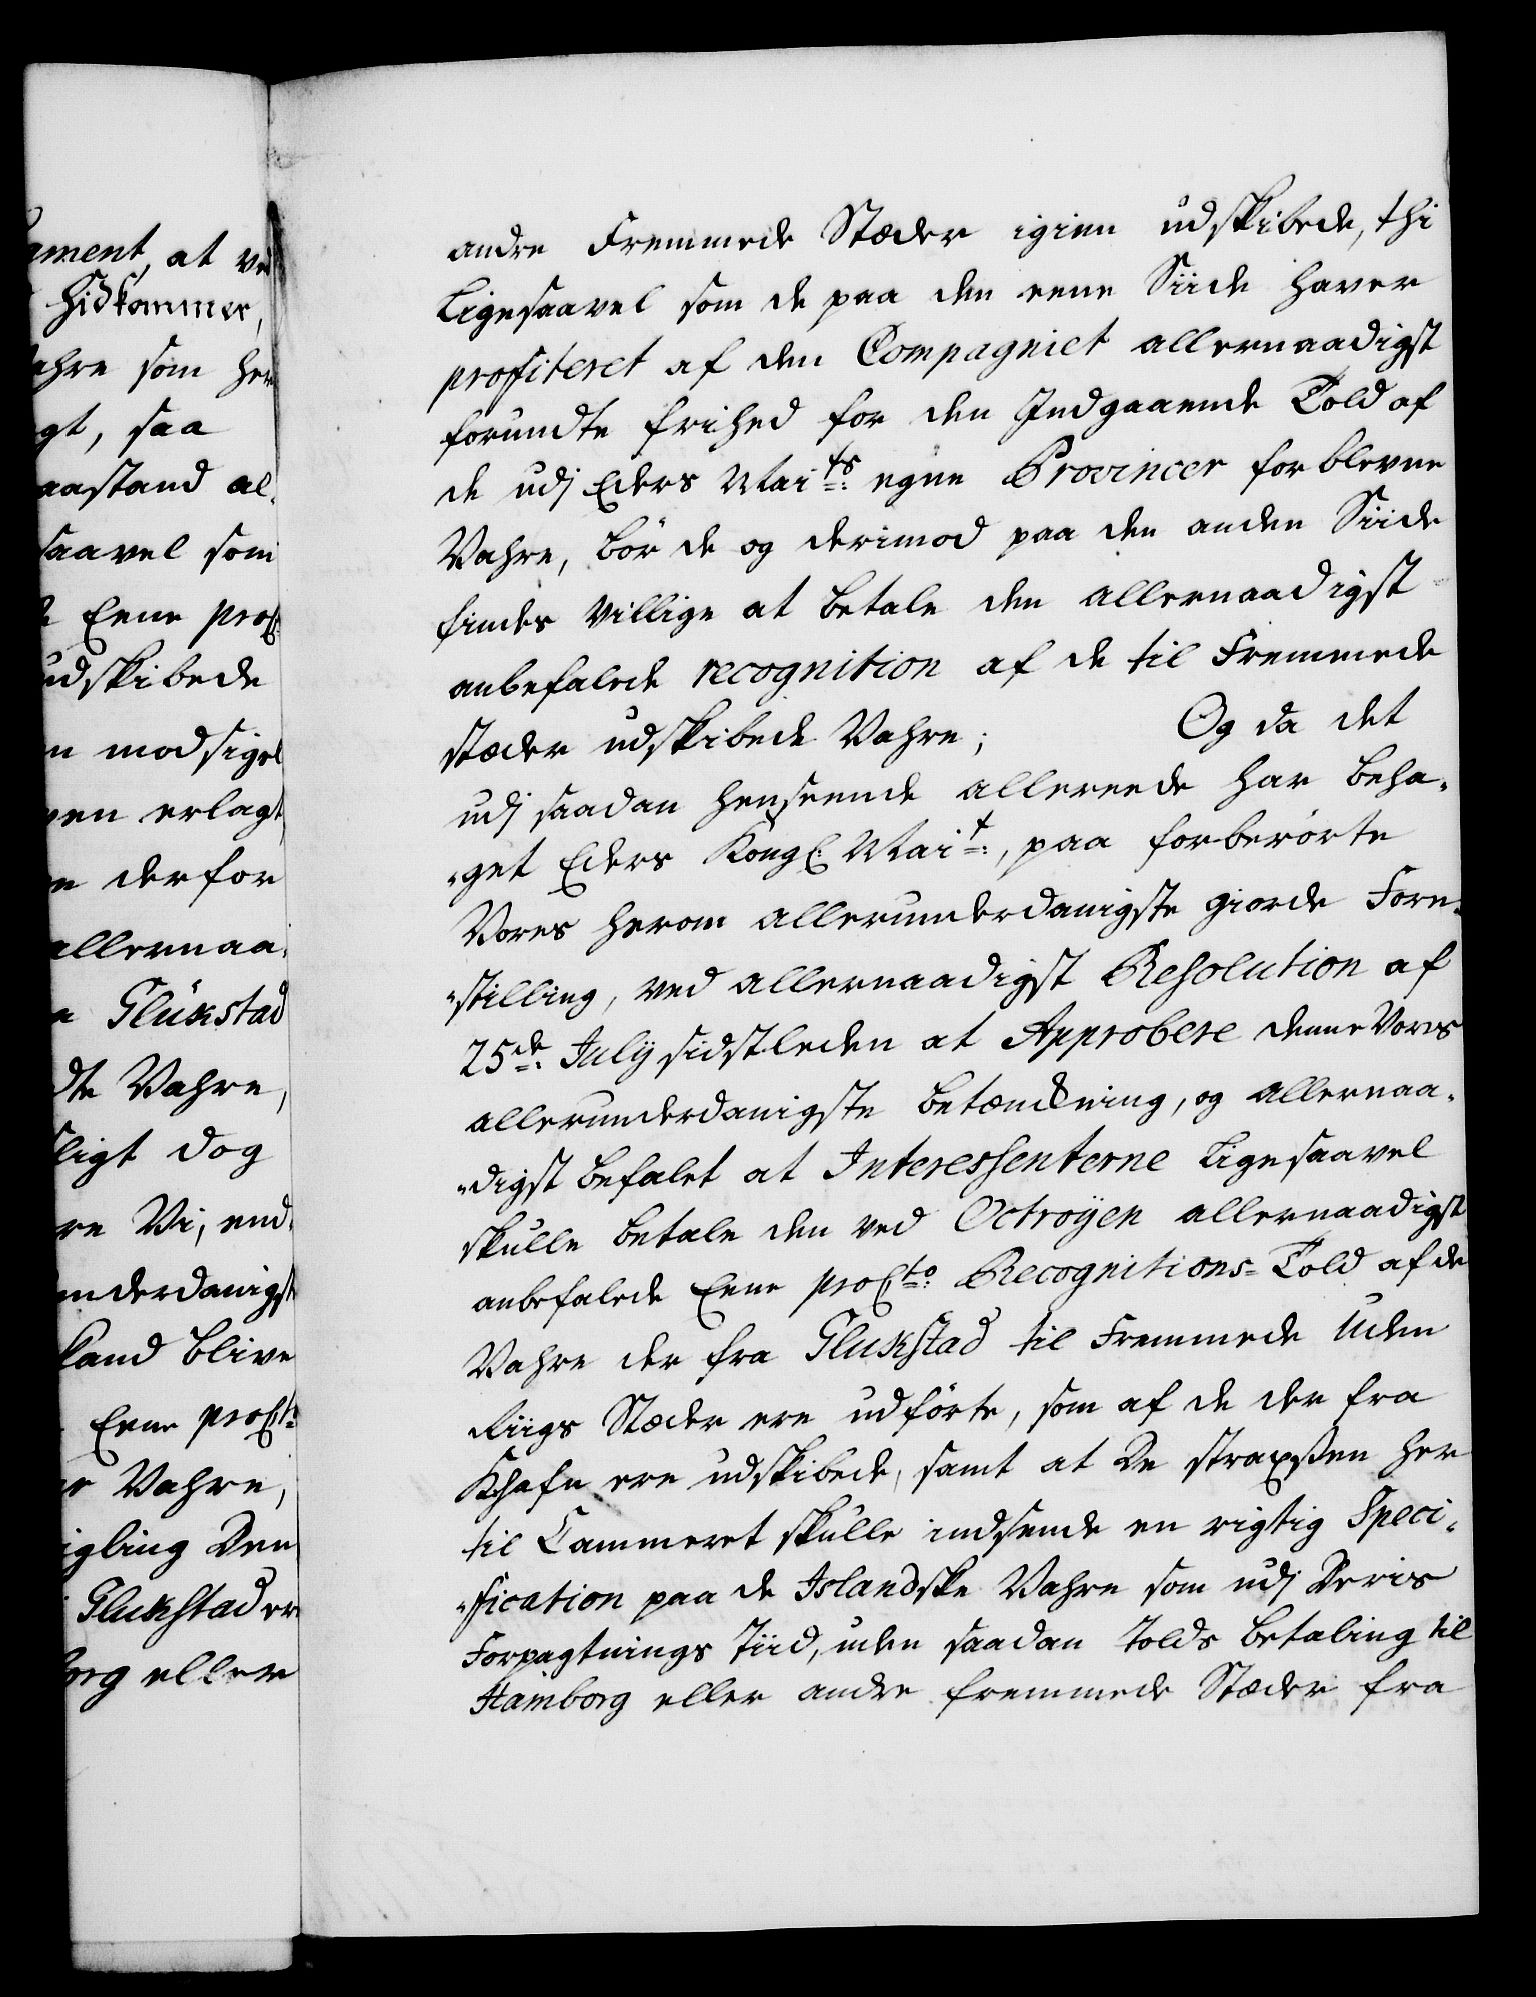 ament, at ved
hidkommer,
ahre som her
gt, saa
aastand al-
saavel som
Eene proC
udskibede
n modsigel
ven erlagt
n derfor
allernaa-
Glükstad
dte Vahre,
ligt dog
re Vi, end-
nderdanigst
kand blive
Eene proCt:
r Vahre,
igling den
Glukstad er
borg eller
andre Fremmede Stæder igien udskibede, thi
Ligesaavel som de paa den eene Siide haver
profiteret af den Compagniet allernaadigst
forundte frihed for den Indgaaende Told af
de udj Eders Maits: egne Provincer forblevne
Vahre, bör de og derimod paa den anden Siide
findes villige at betale den allernaadigst
anbefalede recognition af de til Fremmede
stæder udskibede Vahre; Og da det
udj saadan henseende allereede har beha-
-get Eders Kongl: Mait:, paa forberörte
Vores herom allerunderdanigste giorde Fore-
-stilling, ved allernaadigst Resolution af
25de: Julij sidstleden at Approbere denne Vores
allerunderdanigste betænkning, og allernaa-
-digst befalet at Interessenterne Ligesaavel
skulle betale den ved Octroyen allernaadigst
anbefalede Eene proCto: Recognitions-Told af de
Vahre der fra Glukstad til Fremmede Uden
Riigs Stæder ere udförte, som af de der fra
Khafn ere udskibede, samt at de straxsen her
til Cammeret skulle indsende en rigtig Speci-
-fication paa de Islandske Vahre som udj deris
Forpagtnings Tiid, uden saadan Tolds betaling til
Hamborg eller andre fremmede Stæder fra